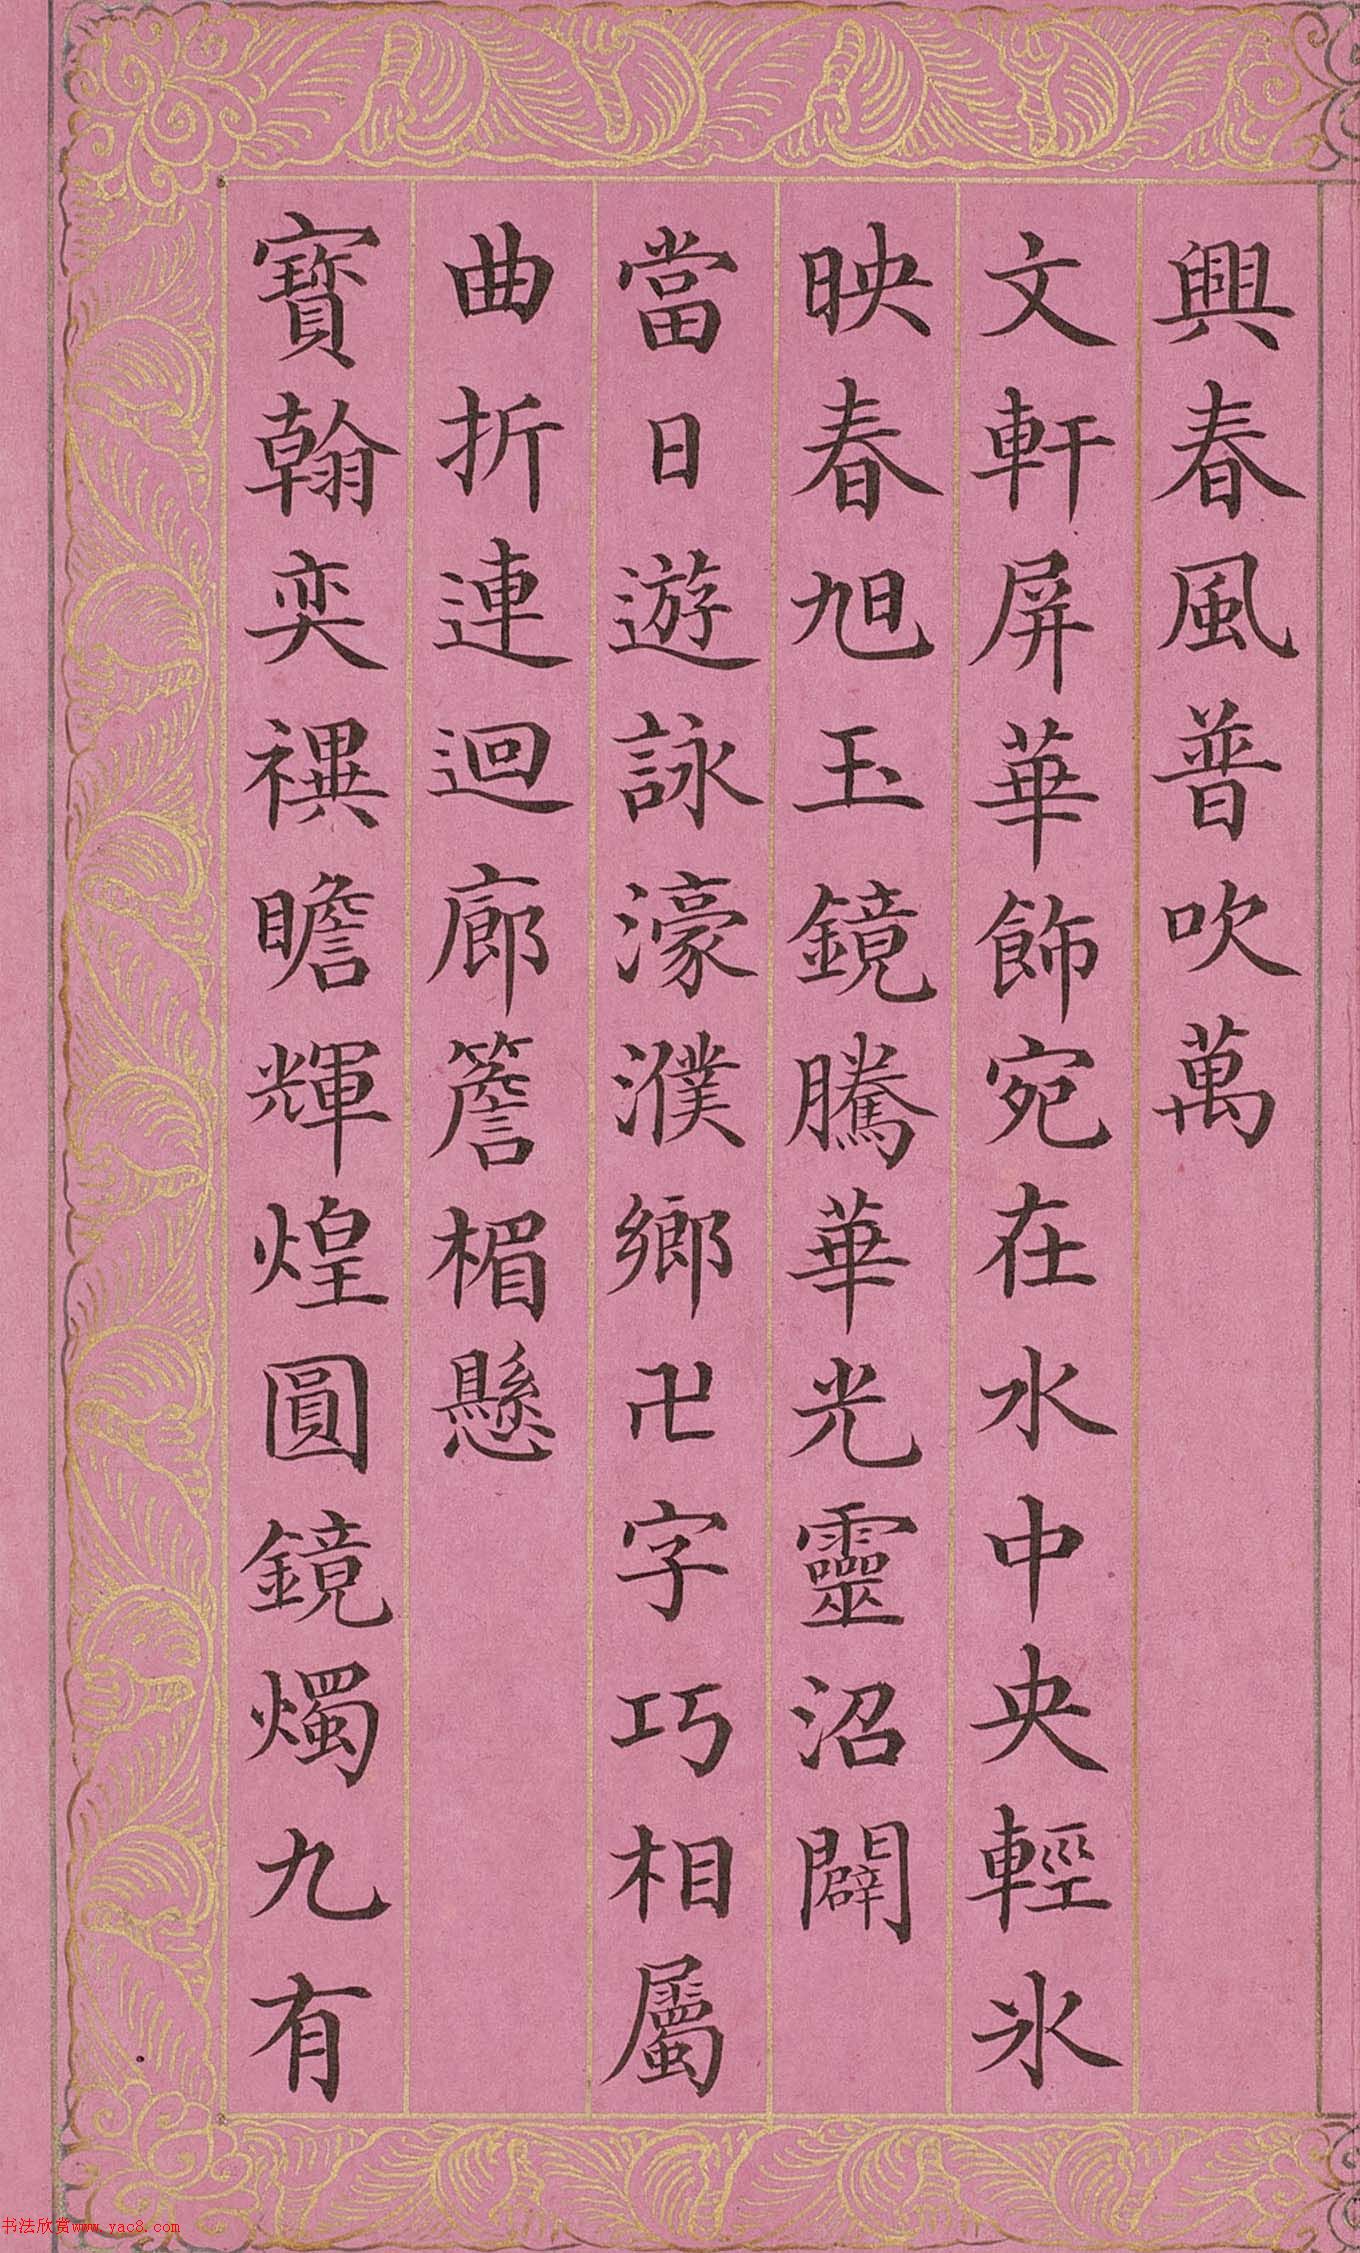 興春風普吹萬
文軒屏華飾宛在水中央輕氷
映春旭玉鏡騰華光靈沼闢
當日遊詠濠濮鄉卍字巧相屬
曲折連迴廊簷楣懸
寶翰奕禩瞻輝煌圓鏡燭九有
书法欣赏www.yac8.com